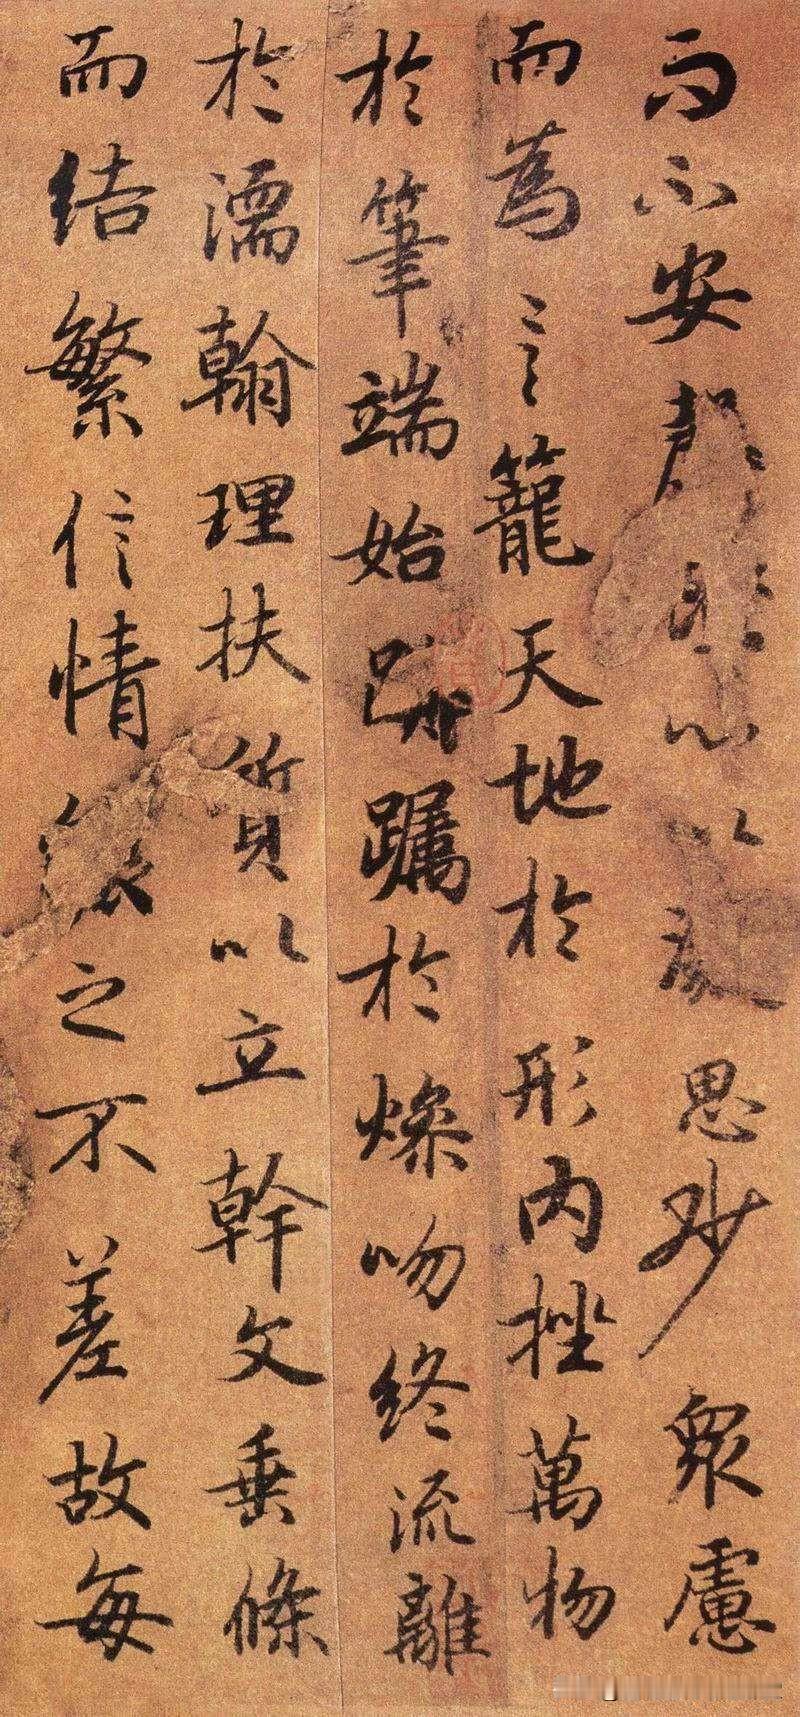 而不安心以思眇眾慮
而為言籠天地於形內挫萬物
於筆端始躅於燥吻終流離
於濡翰理扶質以立幹文垂條
而結繁信情之不差故每